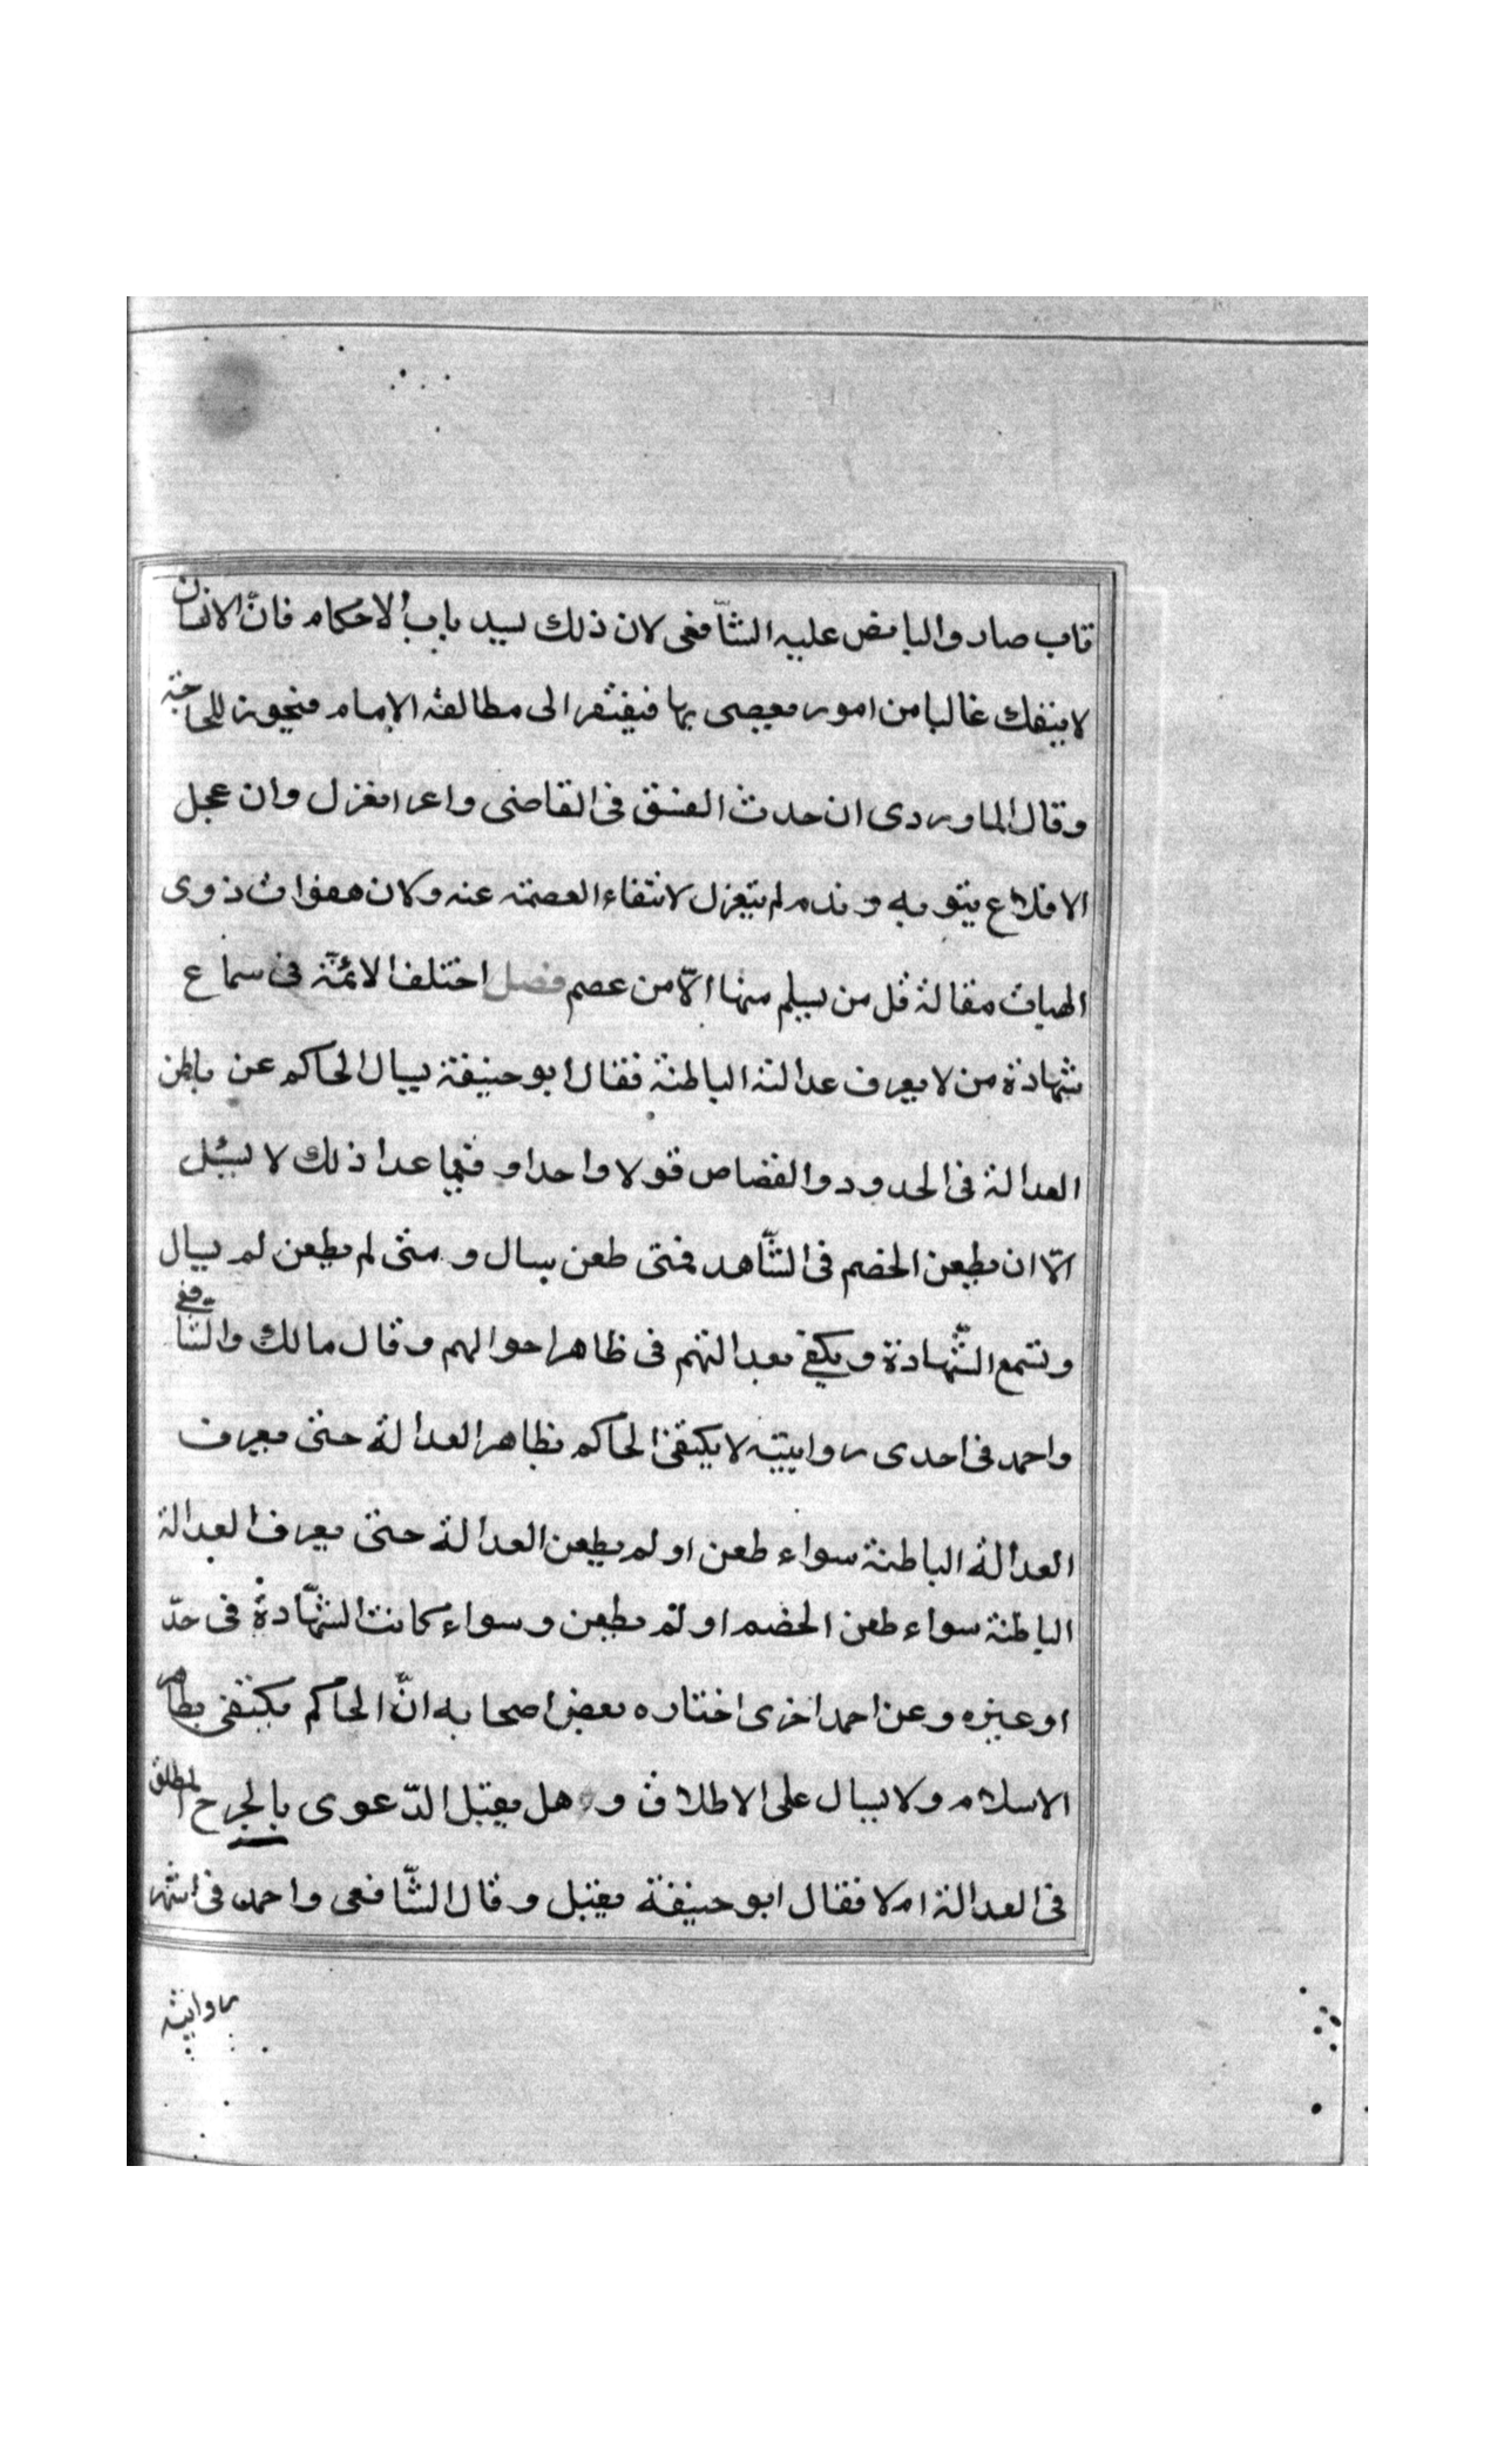 تاب صار واليا نص عليه الشّافعى لان ذلك يسد باب الاحكام فانّ الانسان
لا ينفك غالبا من امور يعصى بها فيفتقر الى مطالعة الامام فيجوز للحاجة
وقال الماوردى ان حدث الفسق فى القاضى وان عجل
الاقلاع بتوبه وندم لم ينعزل لانتفاء العصمة عنه وكان هفوات ذوى
الهيات مقالة قل من يسلم منها الّا من عصم فصل اختلف الائمّة فى سماع
شهادة من لا يعرف عدالته الباطنة فقال ابو حنيفة يسال الحاكم عن باطن
العدالة فى الحدود والقصاص قولا واحدا وفيما عدا ذلك لا يسئل
الّا ان يطعن الخصم فى الشّاهد فمتى طعن يسال ومتى لم يطعن لم يسال
وتسمع الشّهادة ويكفى بعدالتهم فى ظاهر احوالهم وقال مالك والشافعى
واحمد فى احدى روايتيه لا يكتفى الحاكم بظاهر العدالة حتى يعرف
العدالة الباطنة سواء طعن او لم يطعن العدالة حتى يعرف العدالة
الباطنة سواء طعن الخصم او لم يطعن وسواء كانت الشّهادة فى حدّ
او غيره وعن احمد اخرى اختاره بعض اصحابه انّ الحاكم يكتفى بظاهر
الاسلام ولا يسال على الاطلاق و هل يقبل الدّعوى بالجرح المطلق
فى العدالة ام لا فقال ابو حنيفة يقبل وقال الشّافعى واحمد فى اشهر
روايتيه